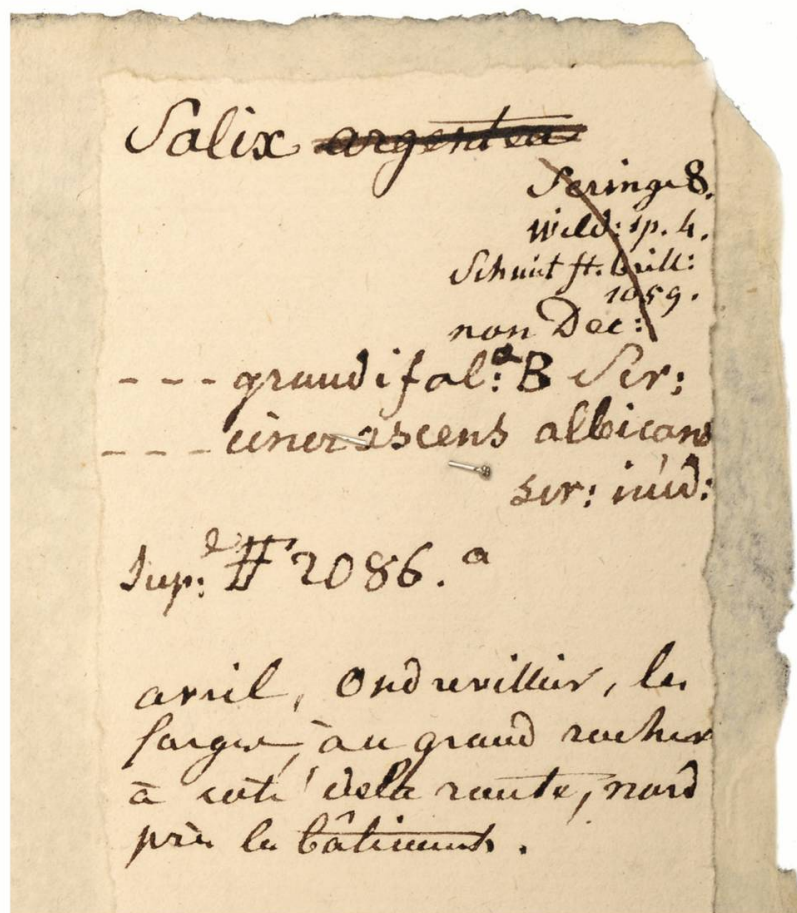 Salix argentea
Seringe 8.
Wild: sp. 4.
Schmit ft. britt:
1059.
non Dec:
--- grandifol:ᵃ B Ser:
--- cinerascens albicans
ser: inéd:
Sup:ᵗ # 2086.ᵃ
avril, Ondrevillier, les
forges, au grand rocher
à coté dela route, nord
près le bâtiments.